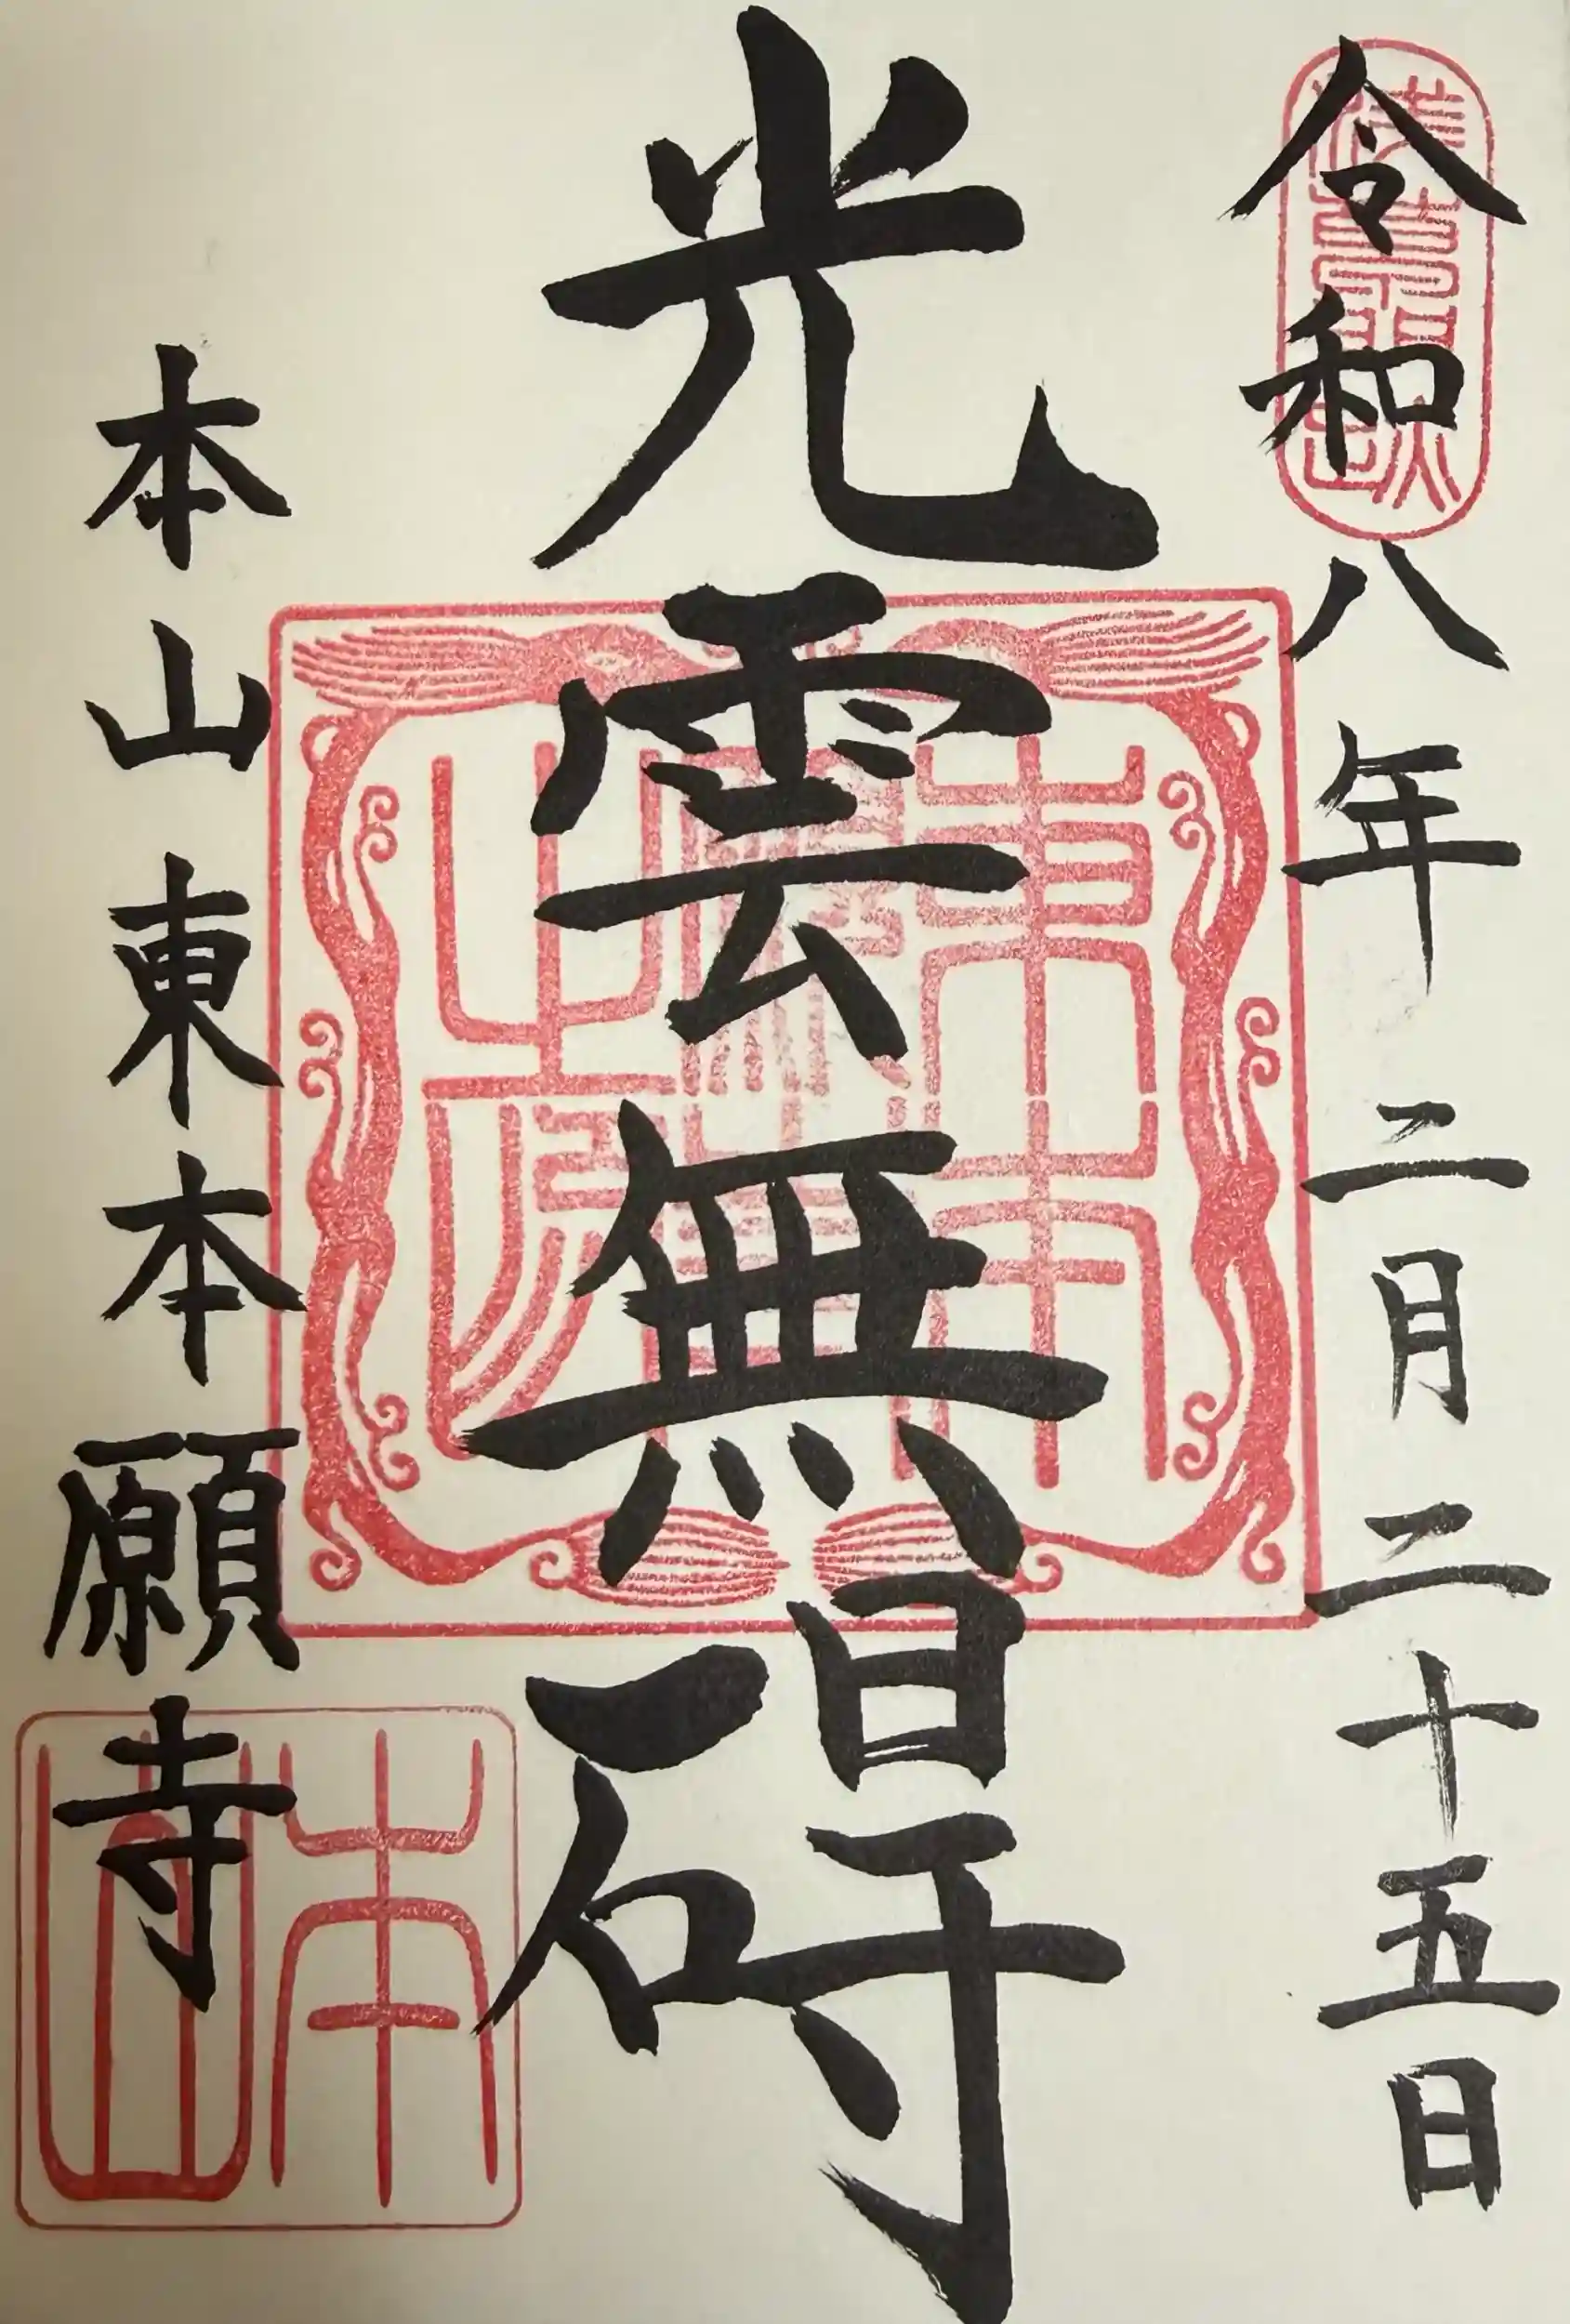 令和八年二月二十五日
光雲無碍
本山東本願寺
本山